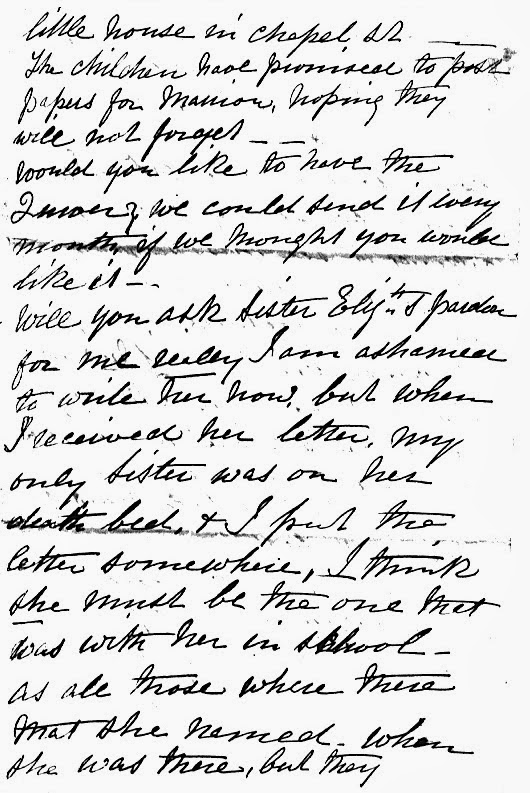 little house in chapel st —
The children have promised to post
papers for Marrion, hoping they
will not forget — —
would you like to have the
we could send it every
month, if we thought you would
like it — -
will you ask Sister Elizth's pardon
for me really I am ashamed
to write her now, but when
I received her letter, my
only sister was on her
death bed, & I put the
letter somewhere, I think
she must be the one that
was with her in school —
as all those where there
that she named - when
she was there, but they